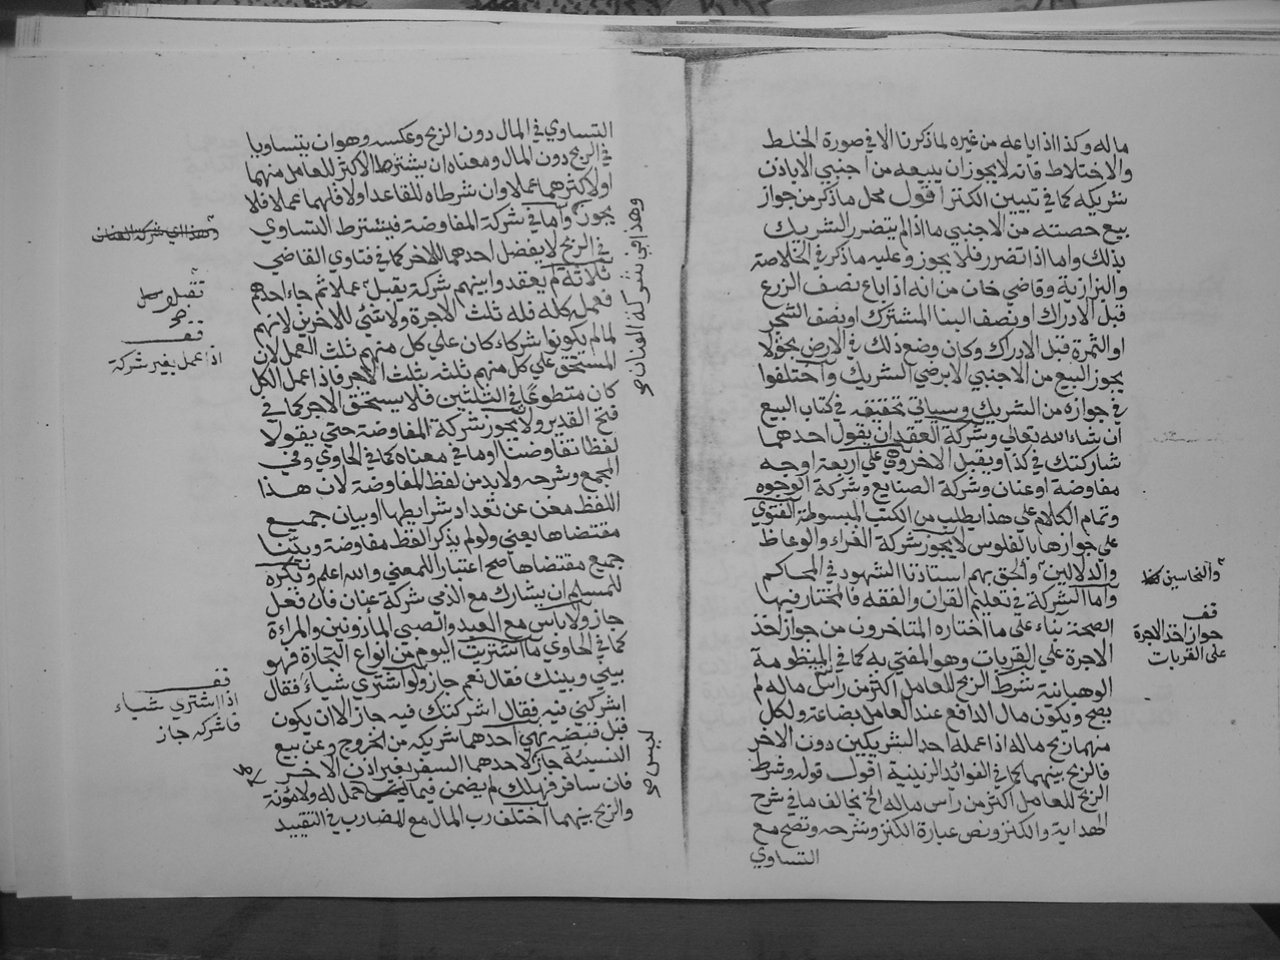 ماله وكذا اذا باعه من غيره لما ذكرنا الا في صورة الخلط
والاختلاط فانه لا يجوز ان يبيعه من اجنبي الا باذن
شريكه كما في تبيين الكنز اقول محل ما ذكر من جواز
بيع حصته من الاجنبي ما اذا لم يتضرر الشريك
بذلك واما اذا تضرر فلا يجوز وعليه ما ذكر في الخلاصة
والبزازية وقاضي خان من انه اذا باع نصف الزرع
قبل الادراك او نصف البنا المشترك او نصف الشجر
او الثمرة قبل الادراك وكان وضع ذلك في الارض بحق لا
يجوز البيع من الاجنبي الا برضي الشريك واختلفوا
في جوازه من الشريك وسياتي تحقيقه في كتاب البيع
ان شاء الله تعالي وشركة العقد ان يقول احدهما
شاركتك في كذا ويقبل الاخر وهي علي اربعة اوجه
مفاوضة او عنان وشركة الصنايع وشركة الوجوه
وتمام الكلام علي هذا يطلب من الكتب المبسوطة الفتوي
علي جوازها بالفلوس لا يجوز شركة القراء والوعاظ
والدلالين والحق بهم استاذنا الشهود في المحاكم
واما الشركة في تعليم القران والفقه فالمختار فيها
الصحة بناء علي ما اختاره المتاخرون من جواز اخذ
الاجرة علي القربات وهو المفتي به كما في المنظومة
الوهبانية شرط الربح للعامل اكثر من راس ماله لم
يصح ويكون مال الدافع عند العامل بضاعة ولكل
منهما ربح ماله اذا عمله احد الشريكين دون الاخر
فالربح بينهما كما في الفوائد الزينية اقول قوله وشرط
الربح للعامل اكثر من راس ماله الخ يخالف ما في شرح
الهداية والكنز ونص عبارة الكنز وشرحه وتصح مع
التساوي
والنحاسين
قف
جواز اخذ الاجرة
علي القربات
التساوي في المال دون الربح وعكسه وهو ان يتساويا
في الربح دون المال ومعناه ان يشترط الاكثر للعامل منهما
او لاكثرهما عملا وان شرطاه للقاعد او لاقلهما عملا فلا
يجوز واما في شركة المفاوضة فيشترط التساوي
في الربح لا يفضل احدهما الاخر كما في فتاوي القاضي
ثلاثة لم يعقدوا بينهم شركة يقبل عملا ثم جاء احدهم
فعمله كله فله ثلث الاجرة ولا شئ للاخرين لانهم
لما لم يكونوا شركاء كان علي كل منهم ثلث العمل لان
المستحق علي كل منهم ثلثه بثلث الاجر فاذا عمل الكل
كان متطوعا في الثلثين فلا يستحق الاجر كما في
فتح القدير ولا يجوز شركة المفاوضة حتي يقولا
لفظا تفاوضنا او ما في معناه كما في الحاوي وفي
المجمع وشرحه ولا بد من لفظ المفاوضة لان هذا
اللفظ مغن عن تعداد شرايطها او بيان جميع
مقتضاها يعني ولو لم يذكر الفظ مفاوضة وبينا
جميع مقتضاها صح اعتبار اللمعني والله اعلم ويكره
للمسلم ان يشارك مع الذمي شركة عنان فان فعل
جاز ولا باس مع العبد والصبي الماذونين والمراءة
كما في الحاوي ما اشتريت اليوم من انواع التجارة فهو
بيني وبينك فقال نعم جاز ولو اشتري شياء فقال
اشركني فيه فقال اشركتك فيه جاز الا ان يكون
قبل قبضه نهي احدهما شريكه من الخروج وعن بيع
النسيئة جاز لاحدهما السفر بغير اذن الاخر
فان سافر فهلك لم يضمن فيما حمل له ولا مؤنة
والربح بينهما اختلف رب المال مع المضارب في التقييد
وهذا في شركة العنان صح
وهذا في شركة العنان
صح
قف
اذا عمل بغير شركة
قف
اذا اشتري شياء
فاشركه جاز
ليس صح